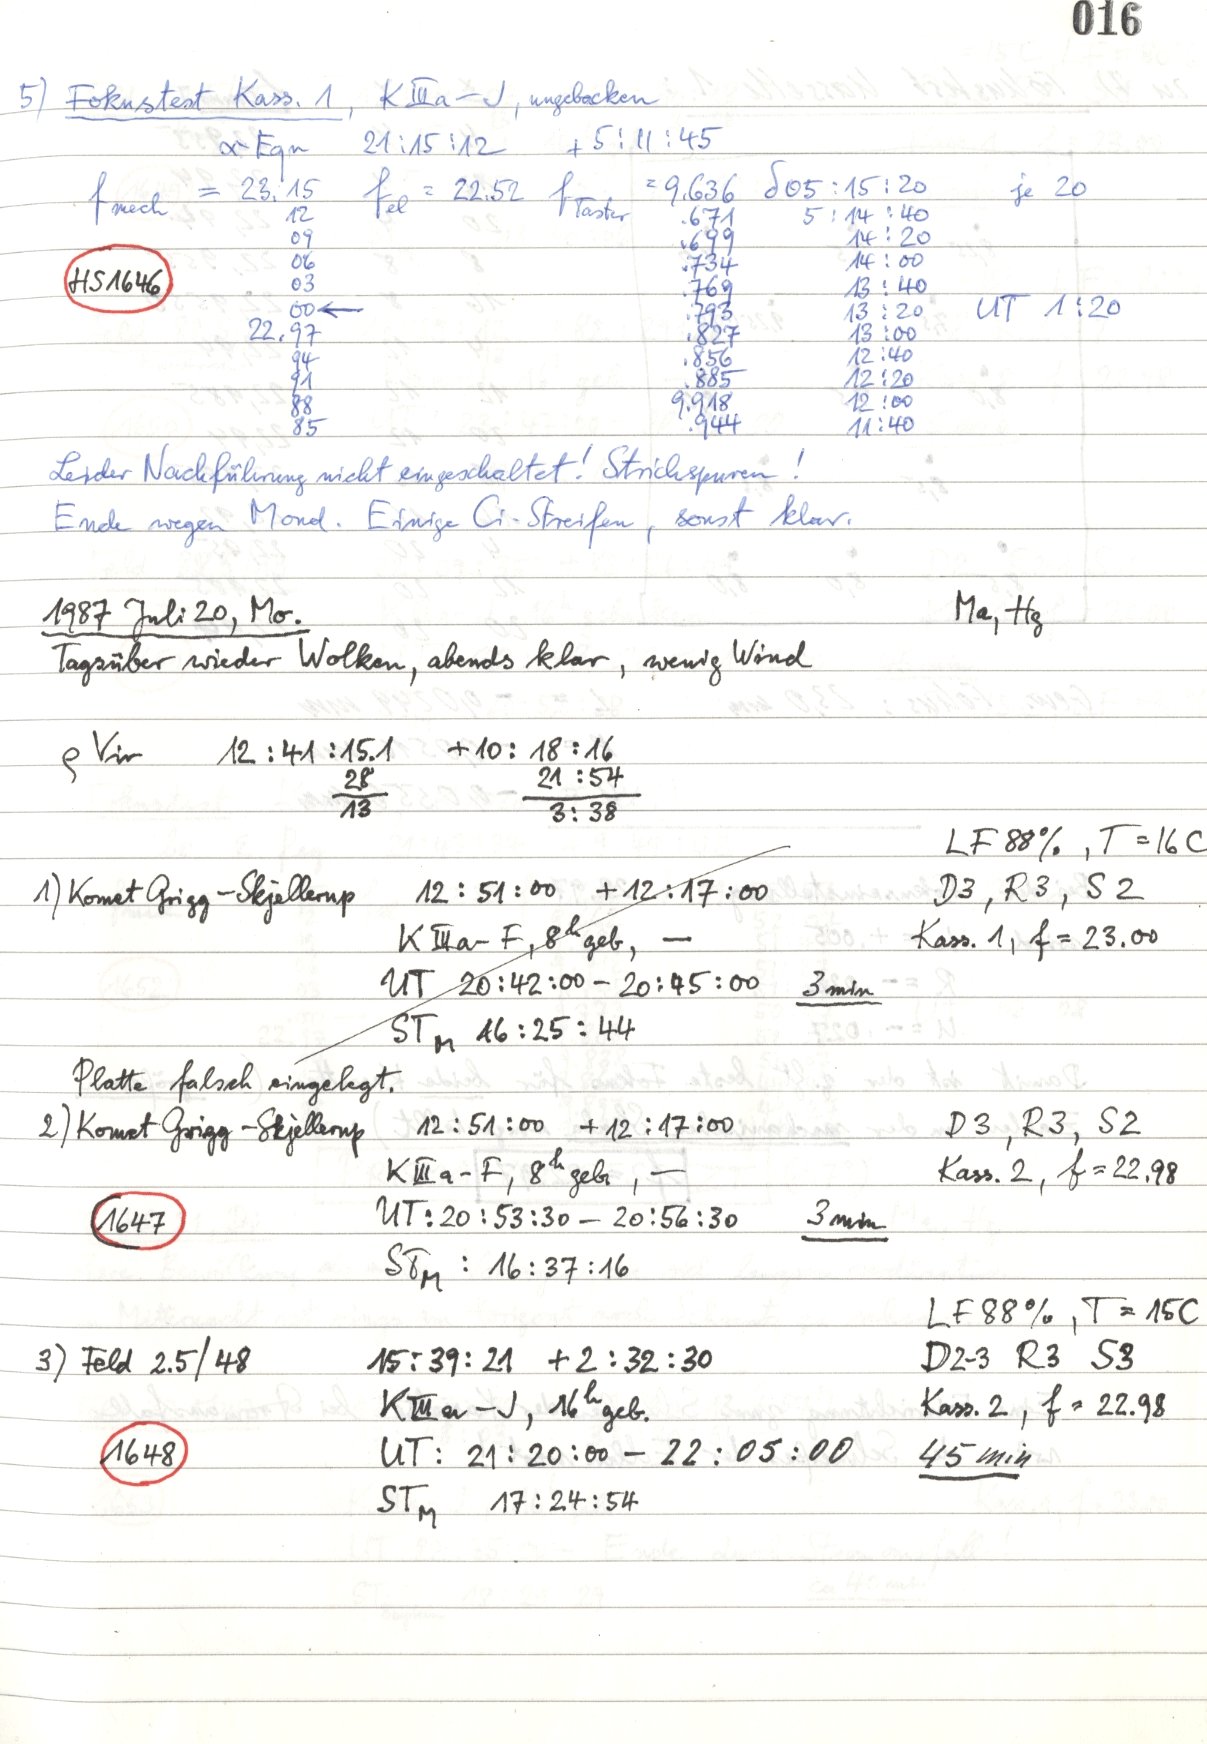 016
5) Fokustest Kass. 1, K IIIa-J, ungebacken
α-Equ 21:15:12 +5:11:45
f mech = 23.15 f el = 22.52 f Taster = 9.636 δ 05:15:20 je 20
12 .671 5:14:40
09 .699 14:20
06 .734 14:00
HS1646 03 .769 13:40
00 ← .793 13:20 UT 1:20
22.97 .827 13:00
94 .856 12:40
91 .885 12:20
88 9.918 12:00
85 .944 11:40
Leider Nachführung nicht eingeschaltet! Strichspuren!
Ende wegen Mond. Einige Ci-Streifen, sonst klar.
1987 Juli 20, Mo. Ma, Hg
Tagsüber wieder Wolken, abends klar, wenig Wind
ρ Vir 12:41:15.1 +10:18:16
28 21:54
13 3:38
LF 88%, T = 16C
1) Komet Grigg-Skjellerup 12:51:00 +12:17:00 D3, R3, S2
K IIIa-F, 8h geb, — Kass. 1, f = 23.00
UT 20:42:00 – 20:45:00 3 min
STM 16:25:44
Platte falsch eingelegt.
2) Komet Grigg-Skjellerup 12:51:00 +12:17:00 D3, R3, S2
K IIIa-F, 8h geb, — Kass. 2, f = 22.98
1647 UT: 20:53:30 – 20:56:30 3 min
STM: 16:37:16
LF 88%, T = 15C
3) Feld 2.5/48 15:39:21 +2:32:30 D2-3 R3 S3
K IIIa-J, 16h geb. Kass. 2, f = 22.98
1648 UT: 21:20:00 – 22:05:00 45 min
STM 17:24:54